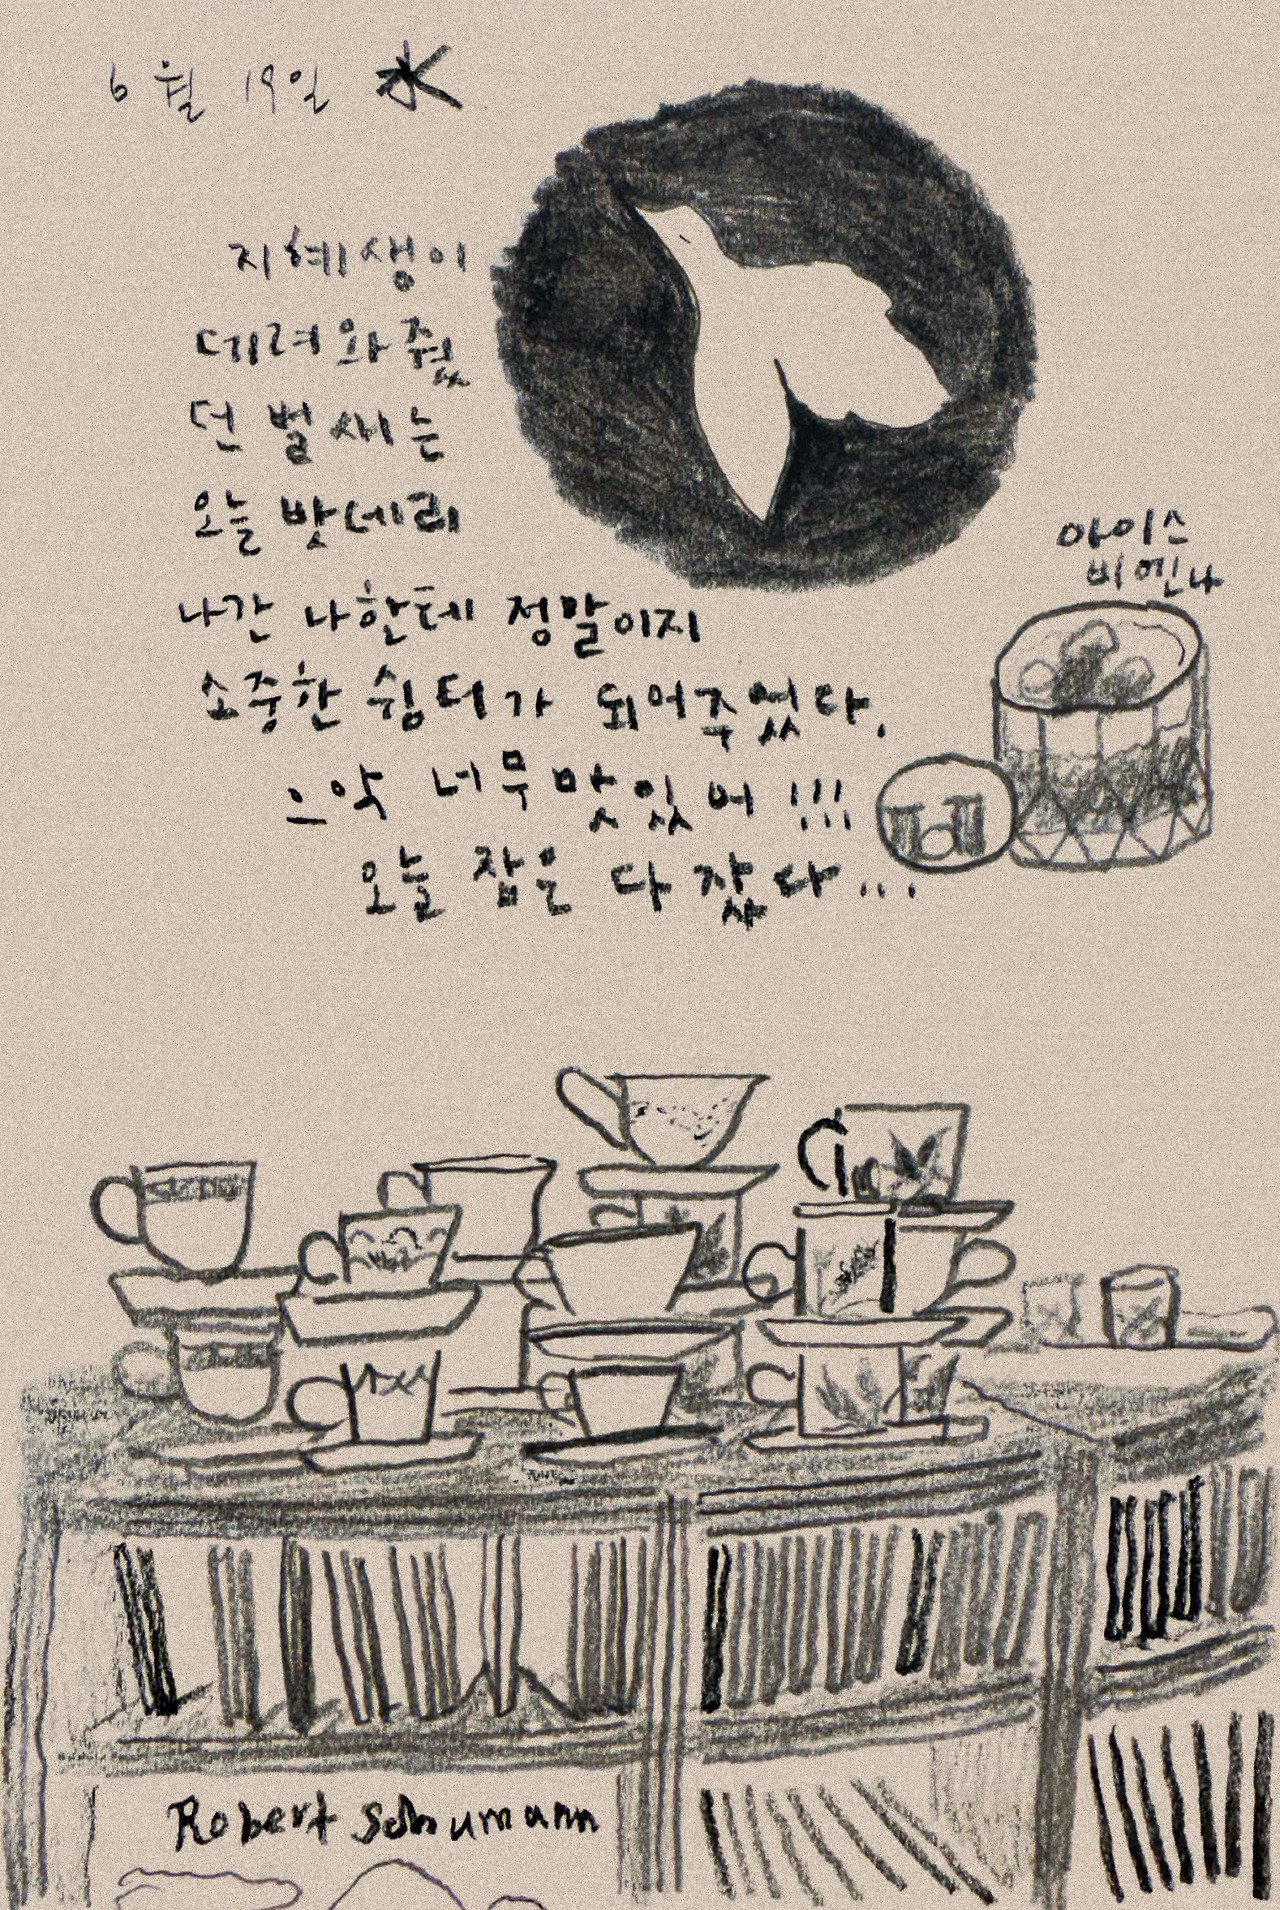 6월 19일 水
지혜생이
데려와줬
던 벌새는
오늘 밧데리
나간 나한테 정말이지
소중한 쉼터가 되어주었다.
아이스
비엔나
으악 너무 맛있어 !!!
오늘 잠은 다 잤다...
Robert Schumann